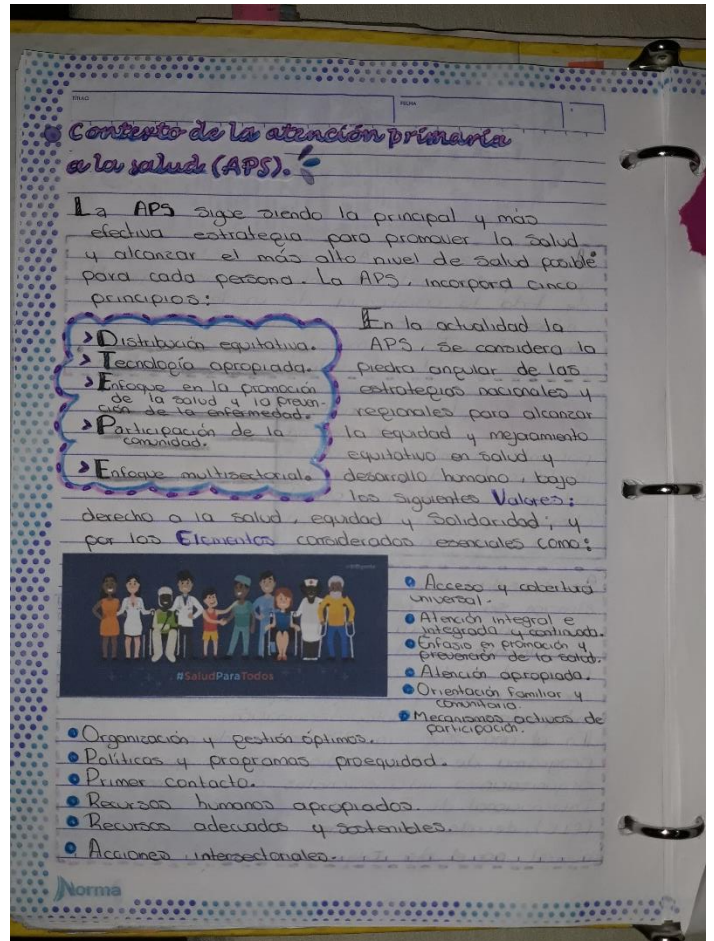 TÍTULO
FECHA
Contexto de la atención primaria
a la salud (APS).
La APS sigue siendo la principal y más
efectiva estrategia para promover la salud
y alcanzar el más alto nivel de salud posible
para cada persona. La APS, incorpora cinco
principios:
> Distribución equitativa.
> Tecnología apropiada.
> Enfoque en la promoción
de la salud y la preven-
ción de la enfermedad.
> Participación de la
comunidad.
> Enfoque multisectorial.
En la actualidad la
APS, se considera la
piedra angular de las
estrategias nacionales y
regionales para alcanzar
la equidad y mejoramiento
equitativo en salud y
desarrollo humano, bajo
los siguientes Valores:
derecho a la salud, equidad y Solidaridad; y
por los Elementos considerados esenciales como:
#SaludParaTodos
• Acceso y cobertura
universal.
• Atención integral e
integrada y continuada.
• Enfasis en promoción y
prevención de la salud.
• Atención apropiada.
• Orientación familiar y
comunitaria.
• Mecanismos activos de
participación.
• Organización y gestión óptimas.
• Políticas y programas proequidad.
• Primer contacto.
• Recursos humanos apropiados.
• Recursos adecuados y sostenibles.
• Acciones intersectoriales.
Norma